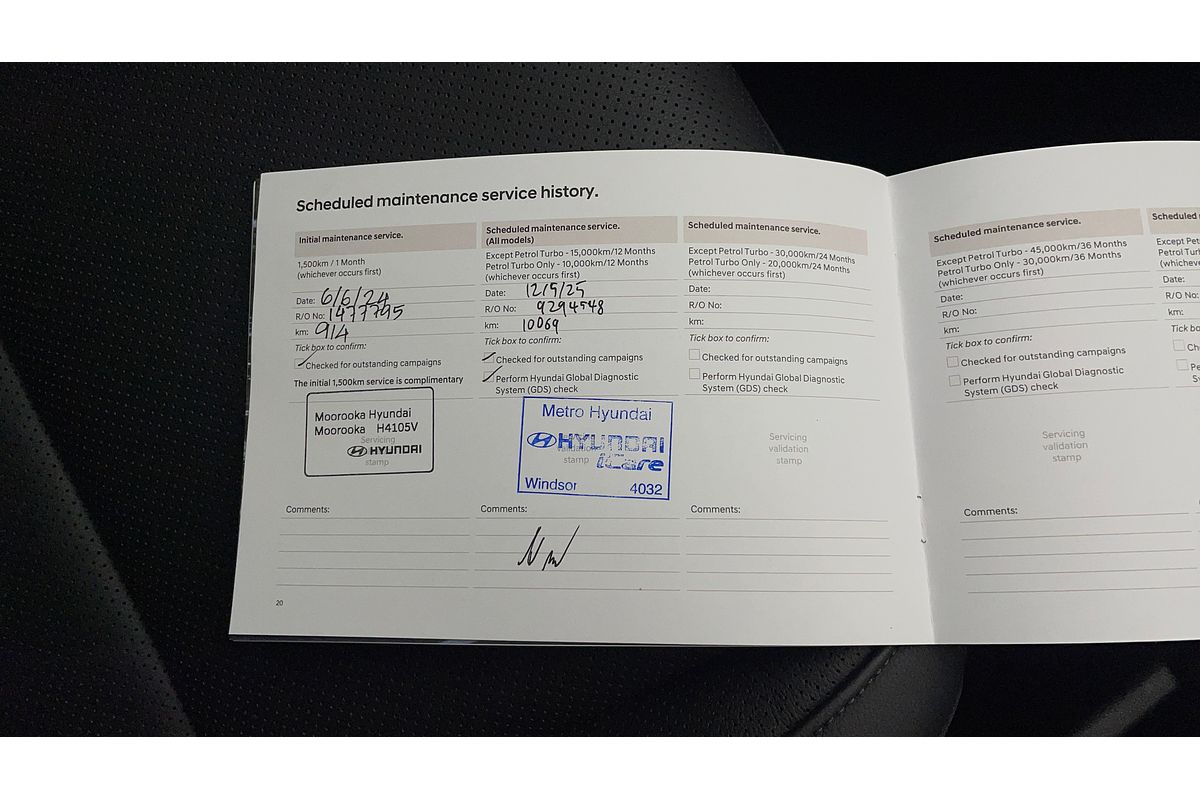 Scheduled maintenance service history.
Initial maintenance service.
1,500km / 1 Month
(whichever occurs first)
Date: 6/6/24
R/O No: 1477795
km: 914
Tick box to confirm:
Checked for outstanding campaigns
The initial 1,500km service is complimentary
Moorooka Hyundai
Moorooka H4105V
Servicing
HYUNDAI
stamp
Comments:
20
Scheduled maintenance service.
(All models)
Except Petrol Turbo - 15,000km/12 Months
Petrol Turbo Only - 10,000km/12 Months
(whichever occurs first)
Date: 12/5/25
R/O No: 9294548
km: 10069
Tick box to confirm:
Checked for outstanding campaigns
Perform Hyundai Global Diagnostic
System (GDS) check
Metro Hyundai
HYUNDAI
validation
stamp iCare
Windsor 4032
Comments:
Scheduled maintenance service.
Except Petrol Turbo - 30,000km/24 Months
Petrol Turbo Only - 20,000km/24 Months
(whichever occurs first)
Date:
R/O No:
km:
Tick box to confirm:
Checked for outstanding campaigns
Perform Hyundai Global Diagnostic
System (GDS) check
Servicing
validation
stamp
Comments:
Scheduled maintenance service.
Except Petrol Turbo - 45,000km/36 Months
Petrol Turbo Only - 30,000km/36 Months
(whichever occurs first)
Date:
R/O No:
km:
Tick box to confirm:
Checked for outstanding campaigns
Perform Hyundai Global Diagnostic
System (GDS) check
Servicing
validation
stamp
Comments:
Scheduled
Except
Petrol
Date:
R/O No:
km:
Tick